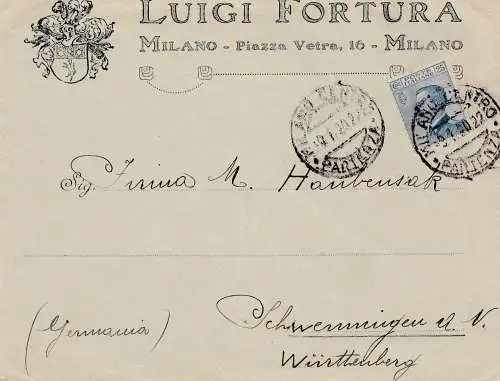 LUIGI FORTURA
MILANO - Piazza Vetra, 16 - MILANO
MILANO CENTRO
PARTENZA
MILANO CENTRO
PARTENZA
Sig. Firma M. Haubensak
(Germania)
Schwenningen a. N.
Württemberg